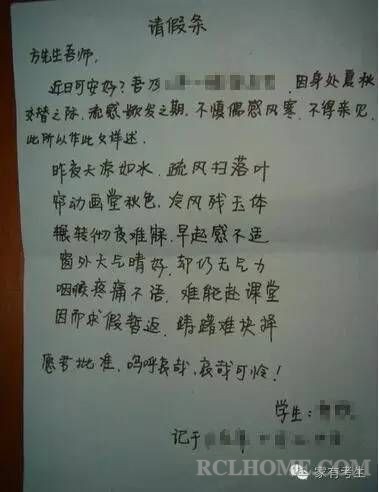 请假条
方先生吾师,
近日可安好?吾乃 因身处夏秋
交替之际,流感频发之期,不慎偶感风寒,不得亲见,
此所以作此文详述.
昨夜天凉如水,疏风扫落叶
邻动画堂秋色,冷风残玉体
辗转彻夜难寐,早起感不适
窗外天气晴好,却仍无气力
咽喉疼痛不语,难能赴课堂
因而求假暂返,踌躇难抉择
恩考批准,呜呼哀哉,哀哉可怜!
学生:
记于
家有考生
RCLHOME.COM